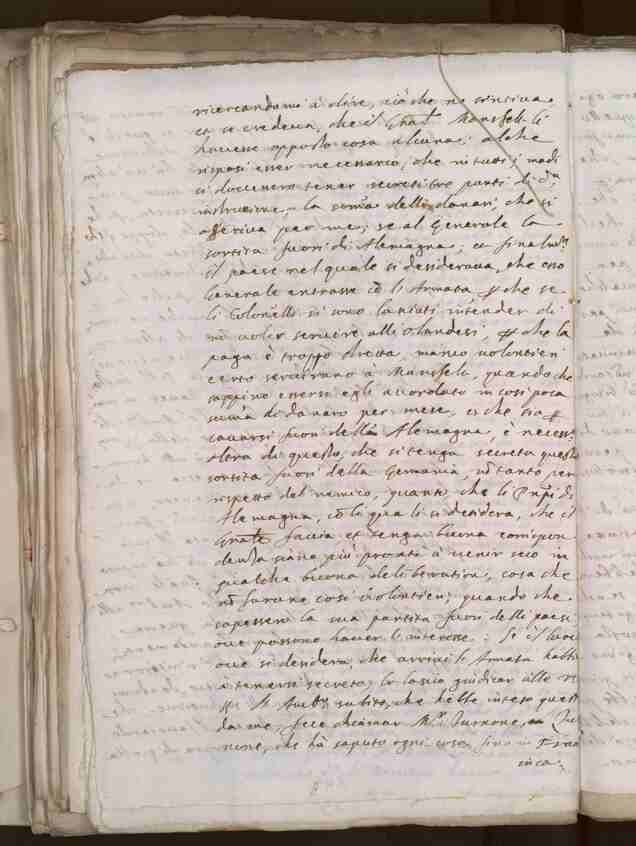 ricercandomi à dire, ciò che ne sentiva
et se credeva, che il Gnal Mansfelt li
havesse opposto cosa alcuna; al che
risposi esser necessario, che in tutti i modi
si dovessero tener secreti tre punti di
instruttione, la somma delli danari, che si
offeriva per mese; se al Generale la
sortita fuori di Alemagna; et
il paese nel quale si desiderava, che esso
Generale entrasse cō li Armata che se
li Colonelli si sono lasciati intender di
nō voler servire alli olandesi, che la
paga è troppo stretta, manco volontieri
certo serviranno a Mansfelt, quando che
sappino essersi egli accordato in così poca
summa di danaro per mese, et che
cavarsi fuori della Alemagna, è
oltra di questo, che si tenga secreta questa
sortita fuori della Germania, nō tanto per
rispetto del nemico, quanto che li Pnpi di
Alemagna, cō li quali si desidera, che il
Gnale faccia et tenga buona corrispon
denza siano più pronti à venir seco in
qualche buona deliberatione, cosa che
nō farano così volontieri; quando che
sapessero la sua partita fuori delli paesi
ove possono haver l'interesse: Se il luoco
ove si desidera, che arrivi l'Armata habbi
à tenersi secreto, lo lascio giudicar alle
subito, che hebbe inteso questo
da me, fece chiamar Mr
che hà saputo ogni cosa, sino in Fran
cia: